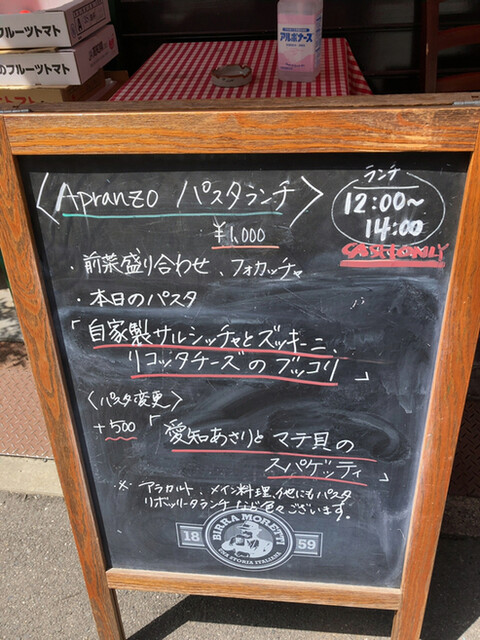 フルーツトマト
のフルーツトマト
アルボナース
〈Apranzo パスタランチ〉
¥1,000
ランチ
12:00〜
14:00
CASH ONLY
・前菜盛り合わせ、フォカッチャ
・本日のパスタ
「自家製サルシッチャとズッキーニ、
リコッタチーズのブッコリ」
〈パスタ変更〉
+500「愛知あさりとマテ貝の
スパゲッティ」
※ アラカルト、メイン料理、他にもパスタ
リボッリータランチなど色々ございます。
BIRRA MORETTI
18 59
UNA STORIA ITALIANA